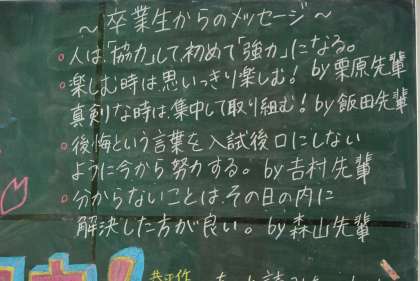 ～卒業生からのメッセージ～
○人は、「協力」して、初めて「強力」になる。
○楽しむ時は思いっきり楽しむ! by栗原先輩
真剣な時は、集中して取り組む! by飯田先輩
○後悔という言葉を入試後口にしない
ように今から努力する。by吉村先輩
○分からないことは、その日の内に
解決した方が良い。by森山先輩